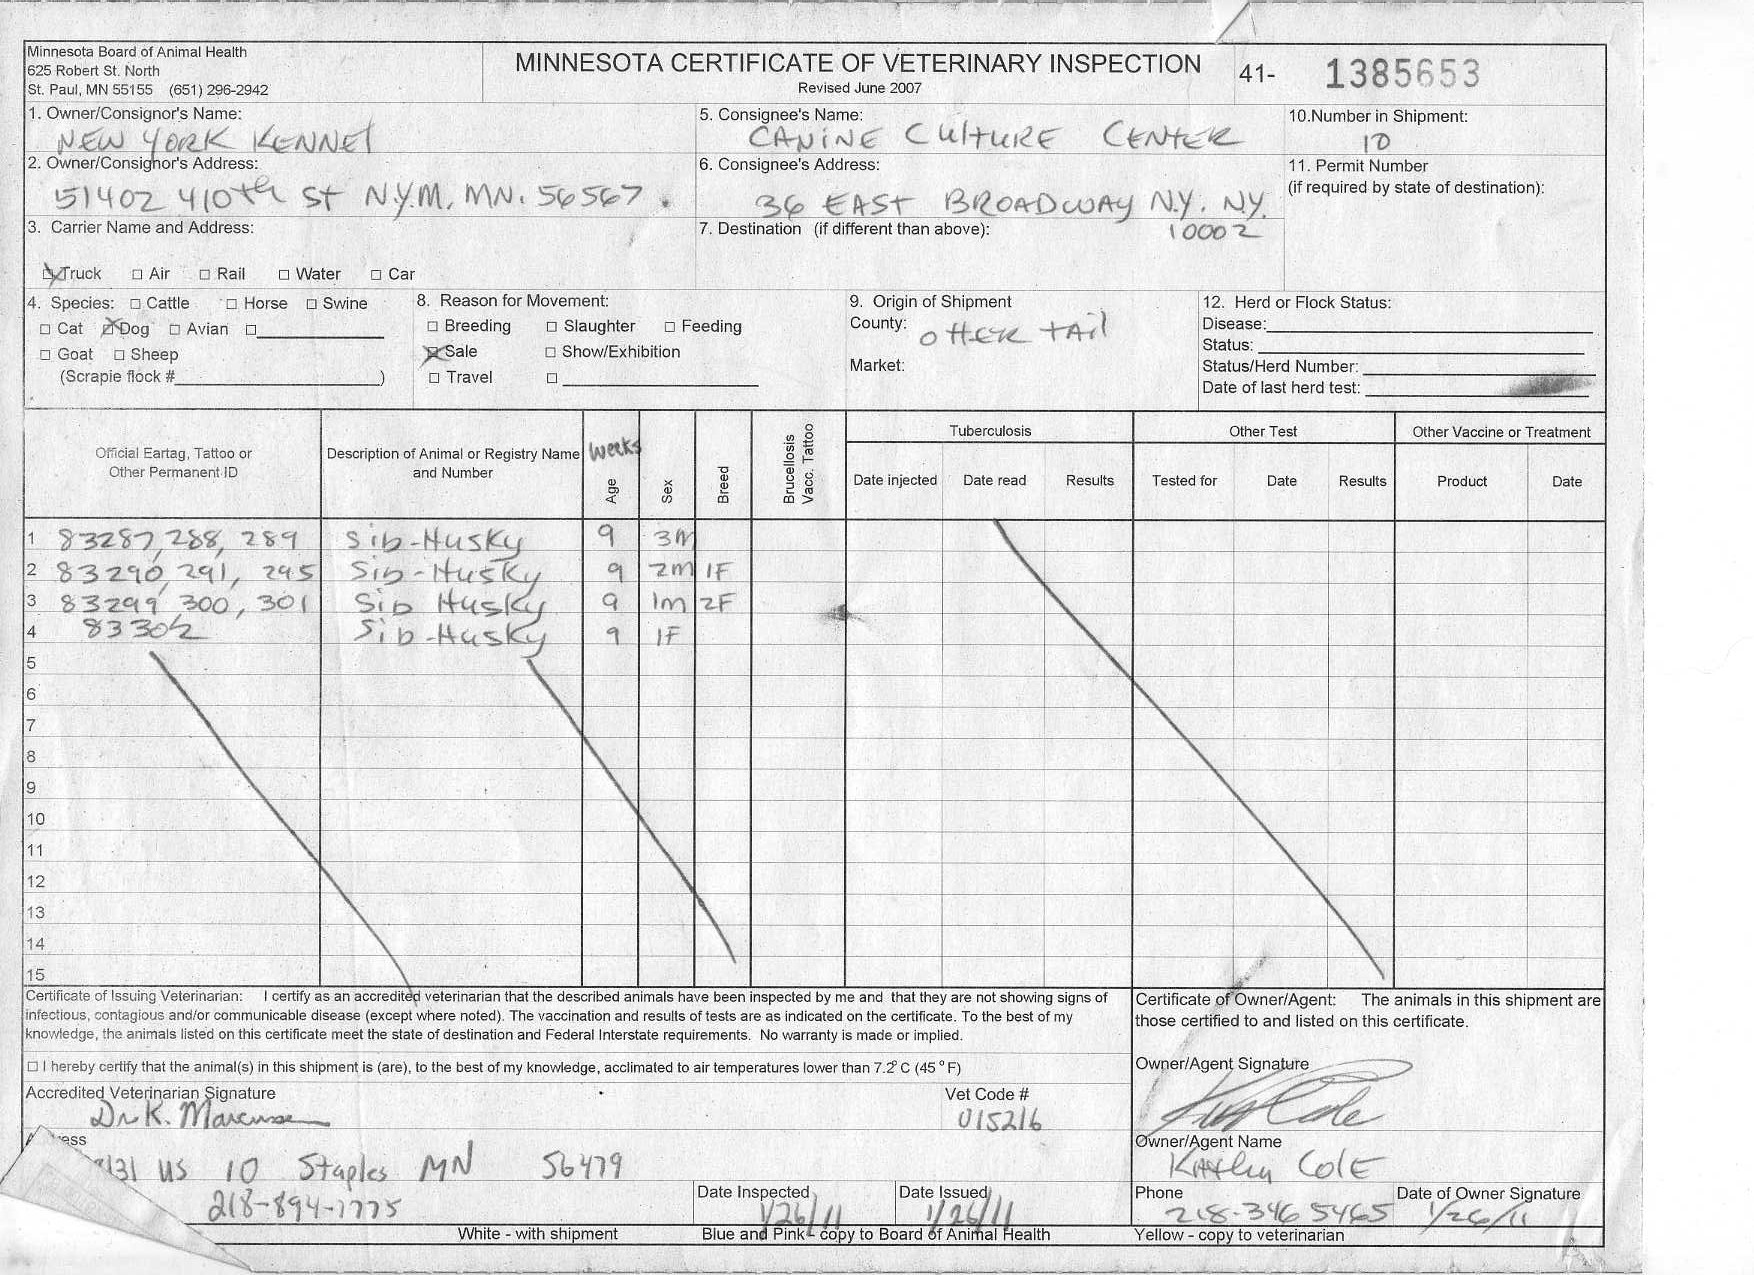 Minnesota Board of Animal Health
625 Robert St. North
St. Paul, MN 55155 (651) 296-2942
MINNESOTA CERTIFICATE OF VETERINARY INSPECTION
Revised June 2007
41- 1385653
1. Owner/Consignor's Name:
NEW YORK KENNEl
2. Owner/Consignor's Address:
51402 410th St N.Y.M, MN. 56567.
3. Carrier Name and Address:
Truck Air Rail Water Car
5. Consignee's Name:
CANINE CultURE CENTER
6. Consignee's Address:
36 EAST BROADWAY N.Y. N.Y.
7. Destination (if different than above): 10002
10.Number in Shipment:
10
11. Permit Number
(if required by state of destination):
4. Species: Cattle Horse Swine
Cat Dog Avian
Goat Sheep
(Scrapie flock # )
8. Reason for Movement:
Breeding Slaughter Feeding
Sale Show/Exhibition
Travel
9. Origin of Shipment
County: OttER tAil
Market:
12. Herd or Flock Status:
Disease:
Status:
Status/Herd Number:
Date of last herd test:
Official Eartag, Tattoo or
Other Permanent ID
Description of Animal or Registry Name
and Number
Weeks
Age
Sex
Breed
Brucellosis
Vacc. Tattoo
Tuberculosis
Date injected Date read Results
Other Test
Tested for Date Results
Other Vaccine or Treatment
Product Date
1 83287, 288, 289 Sib-Husky 9 3M
2 83290, 291, 295 Sib-Husky 9 2m 1F
3 83299, 300, 301 Sib Husky 9 1m 2F
4 83302 Sib-Husky 9 1F
5
6
7
8
9
10
11
12
13
14
15
Certificate of Issuing Veterinarian: I certify as an accredited veterinarian that the described animals have been inspected by me and that they are not showing signs of
infectious, contagious and/or communicable disease (except where noted). The vaccination and results of tests are as indicated on the certificate. To the best of my
knowledge, the animals listed on this certificate meet the state of destination and Federal Interstate requirements. No warranty is made or implied.
I hereby certify that the animal(s) in this shipment is (are), to the best of my knowledge, acclimated to air temperatures lower than 7.2° C (45 ° F)
Accredited Veterinarian Signature
Dr K.
Vet Code #
015216
US 10 Staples MN 56479
218-894-1775
Date Inspected
1/26/11
Date Issued
1/26/11
Certificate of Owner/Agent: The animals in this shipment are
those certified to and listed on this certificate.
Owner/Agent Signature
Owner/Agent Name
Kathy ColE
Phone
218-346 5465
Date of Owner Signature
1/26/11
White - with shipment
Blue and Pink - copy to Board of Animal Health
Yellow - copy to veterinarian